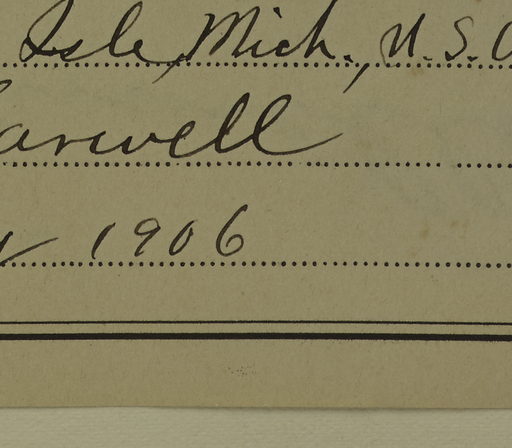 Isle, Mich., U.S.
arwell
1906